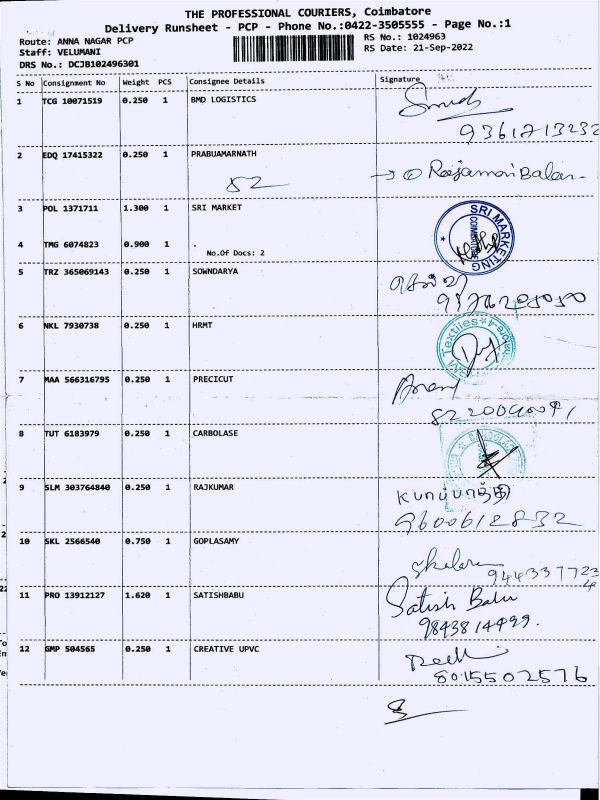 THE PROFESSIONAL COURIERS, Coimbatore
Delivery Runsheet - PCP - Phone No.:0422-3505555 - Page No.:1
Route: ANNA NAGAR PCP
Staff: VELUMANI
DRS No.: DCJB102496301
RS No.: 1024963
RS Date: 21-Sep-2022
S No Consignment No Weight PCS Consignee Details Signature
1 TCG 10071519 0.250 1 BMD LOGISTICS
9361713232
2 EDQ 17415322 0.250 1 PRABUAMARNATH
52
3 POL 1371711 1.300 1 SRI MARKET
SRI MARKETING
COIMBATORE
4 TMG 6074823 0.900 1 .
No.Of Docs: 2
5 TRZ 365069143 0.250 1 SOWNDARYA
6 NKL 7930738 0.250 1 HRMT
Textiles
7 MAA 566316795 0.250 1 PRECICUT
8 TUT 6183979 0.250 1 CARBOLASE
9 SLM 303764840 0.250 1 RAJKUMAR
9600612832
10 SKL 2566540 0.750 1 GOPLASAMY
11 PRO 13912127 1.620 1 SATISHBABU
Satish Babu
9843814499.
12 GMP 504565 0.250 1 CREATIVE UPVC
8015502576